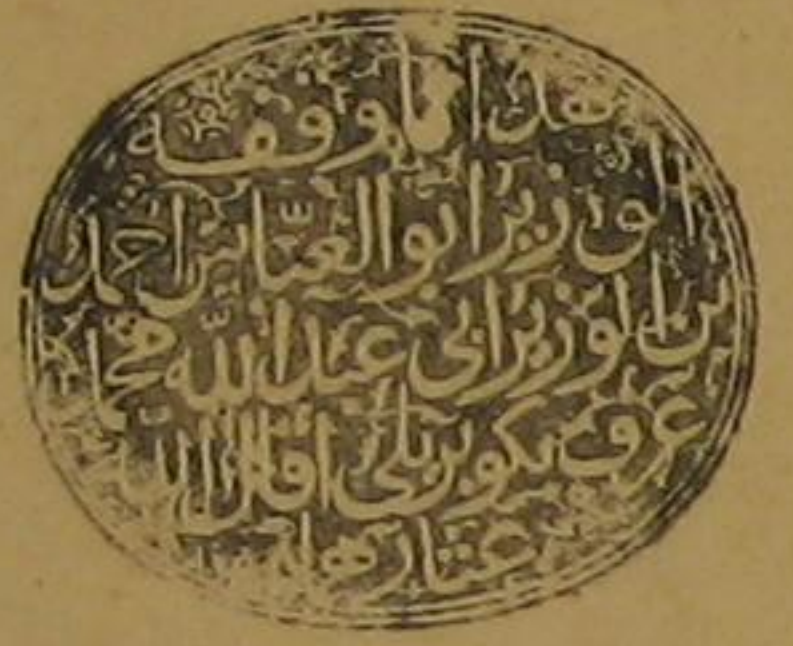 هذا ما وقفه
الوزير ابو العبّاس احمد
بن الوزير ابي عبد اللّه محمّد
عرف بكوبريلي اقال اللّه
عثارهما